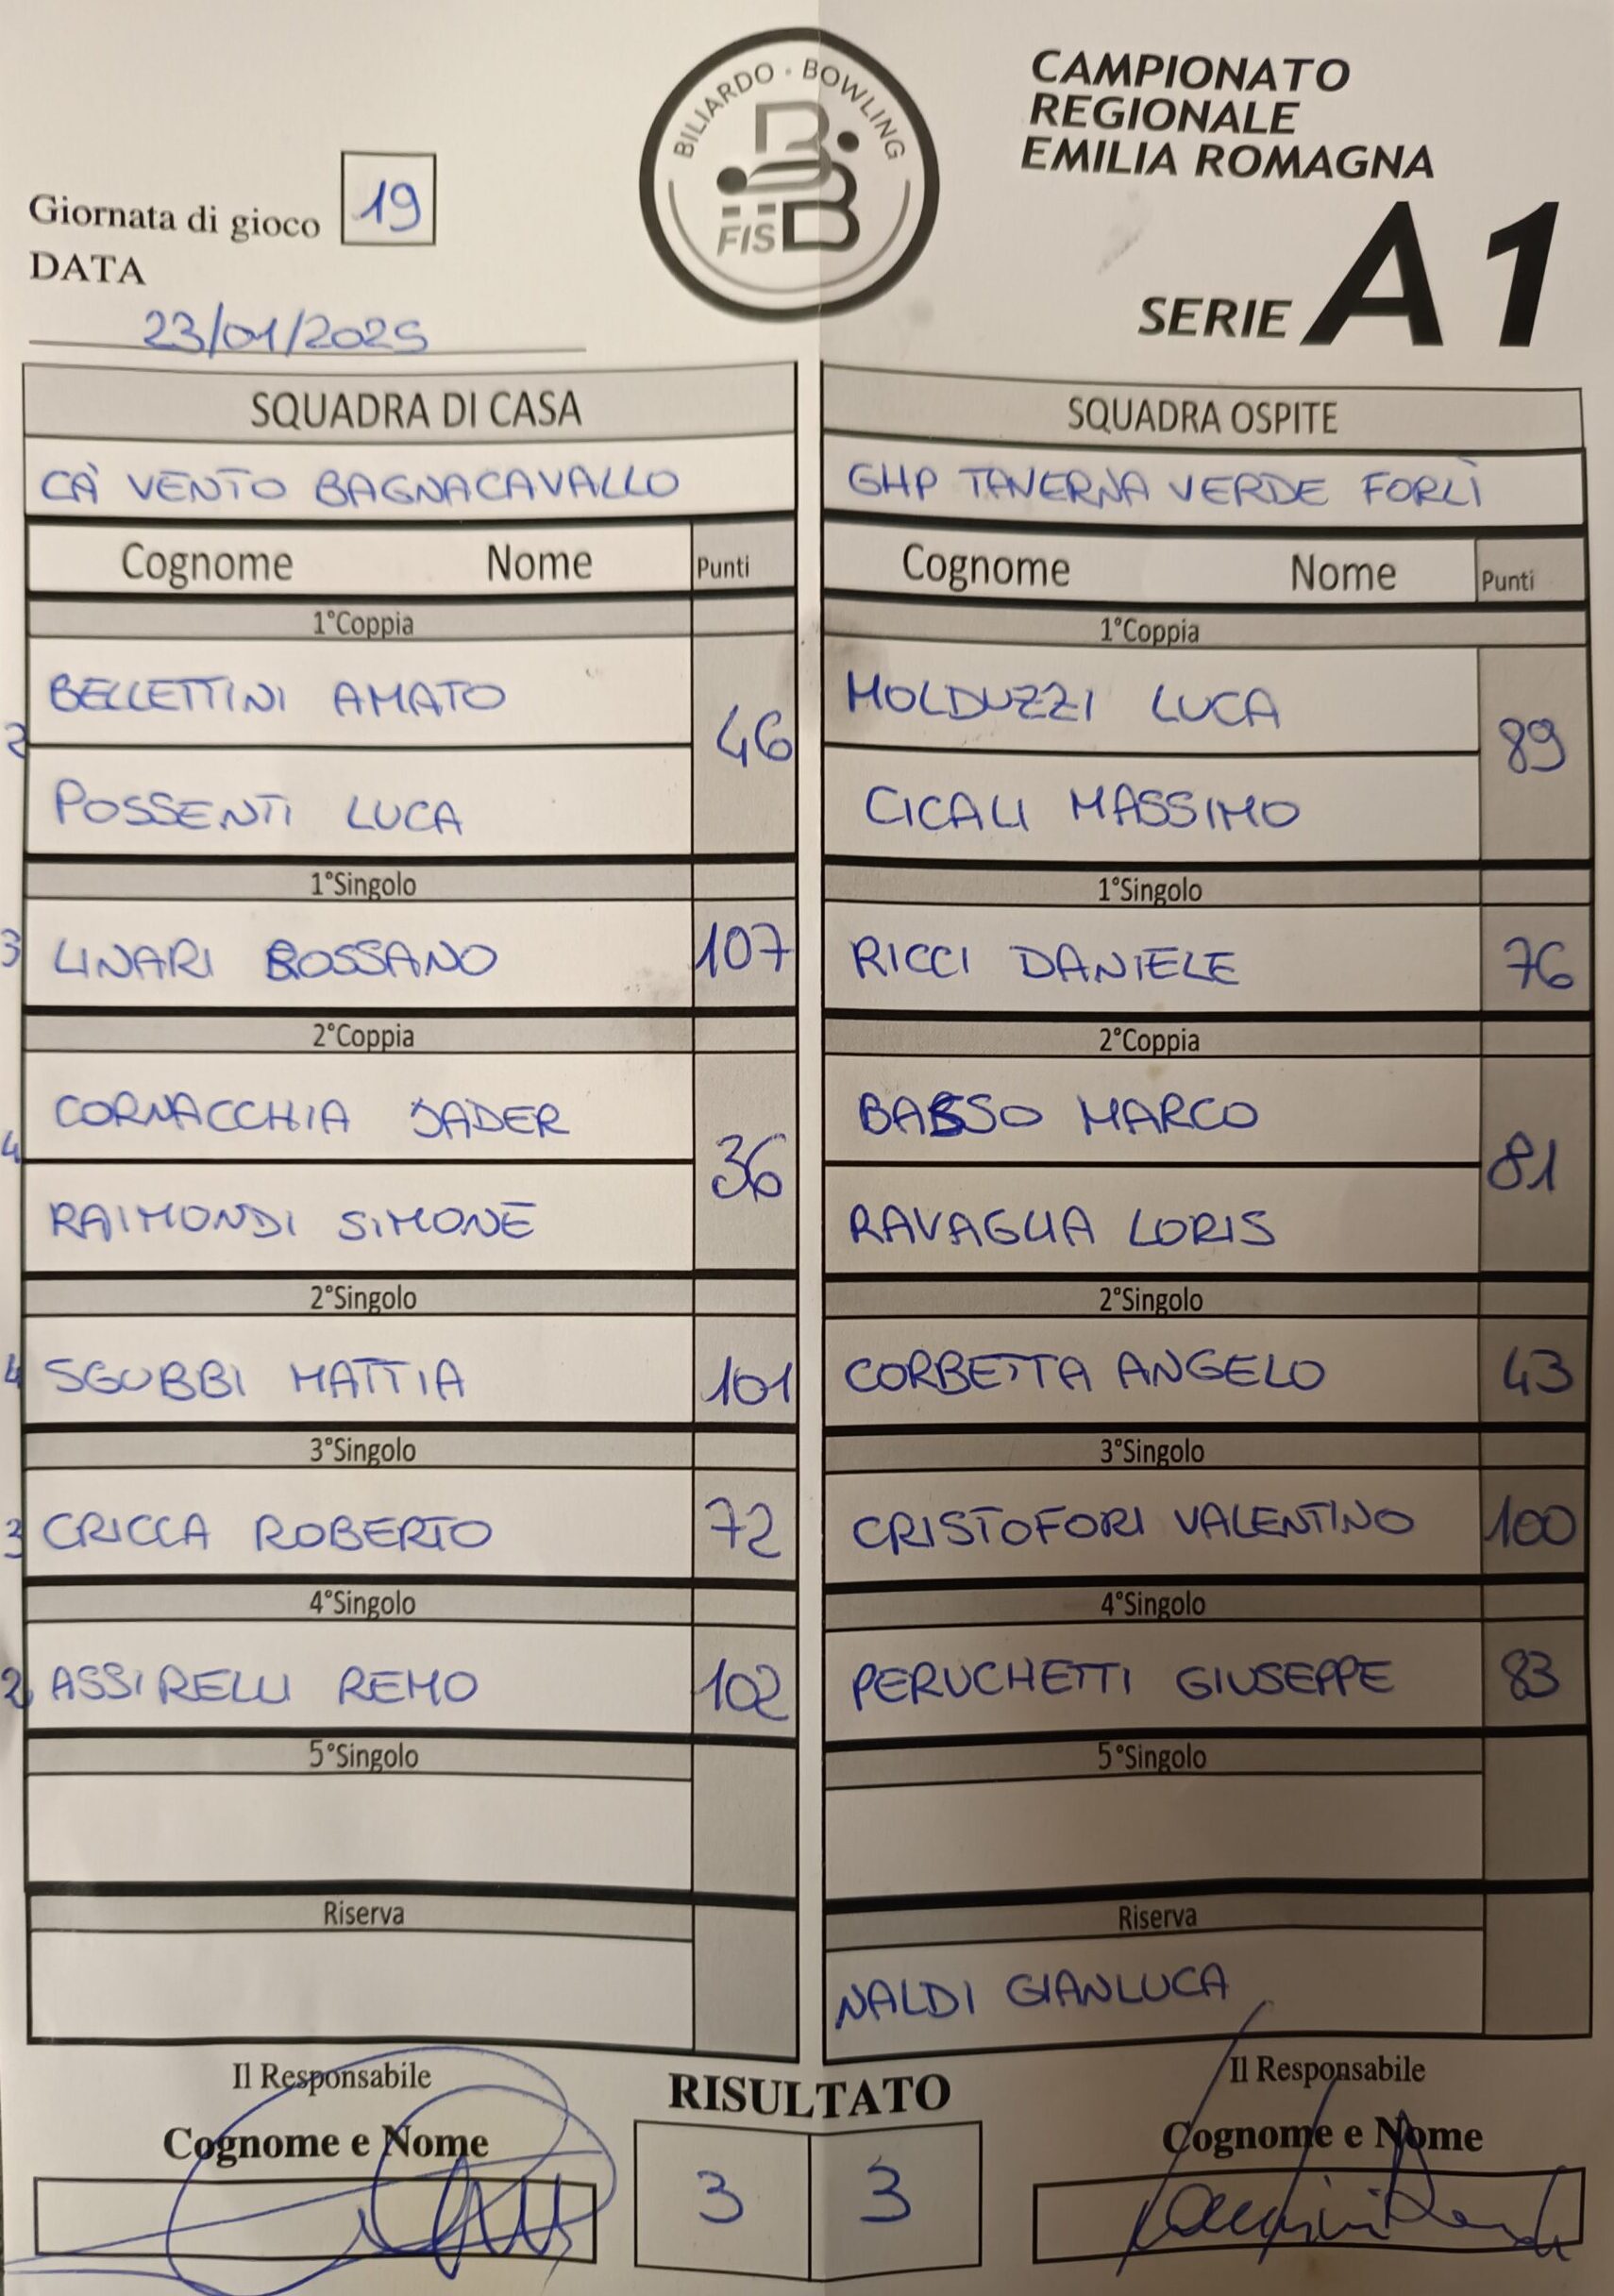 BILIARDO · BOWLING
FIS
CAMPIONATO
REGIONALE
EMILIA ROMAGNA
SERIE A1
Giornata di gioco 19
DATA
23/01/2025
SQUADRA DI CASA
CA' VENTO BAGNACAVALLO
Cognome Nome Punti
1°Coppia
2 BELLETTINI AMATO
POSSENTI LUCA
46
1°Singolo
3 LINARI ROSSANO 107
2°Coppia
4 CORNACCHIA JADER
RAIMONDI SIMONE
36
2°Singolo
4 SGUBBI MATTIA 101
3°Singolo
3 CRICCA ROBERTO 72
4°Singolo
2 ASSIRELLI REMO 102
5°Singolo
Riserva
SQUADRA OSPITE
GHP TAVERNA VERDE FORLÌ
Cognome Nome Punti
1°Coppia
MOLDUZZI LUCA
CICALI MASSIMO
89
1°Singolo
RICCI DANIELE 76
2°Coppia
BASSO MARCO
RAVAGLIA LORIS
81
2°Singolo
CORBETTA ANGELO 43
3°Singolo
CRISTOFORI VALENTINO 100
4°Singolo
PERUCHETTI GIUSEPPE 83
5°Singolo
Riserva
NALDI GIANLUCA
Il Responsabile
Cognome e Nome
RISULTATO
3 3
Il Responsabile
Cognome e Nome